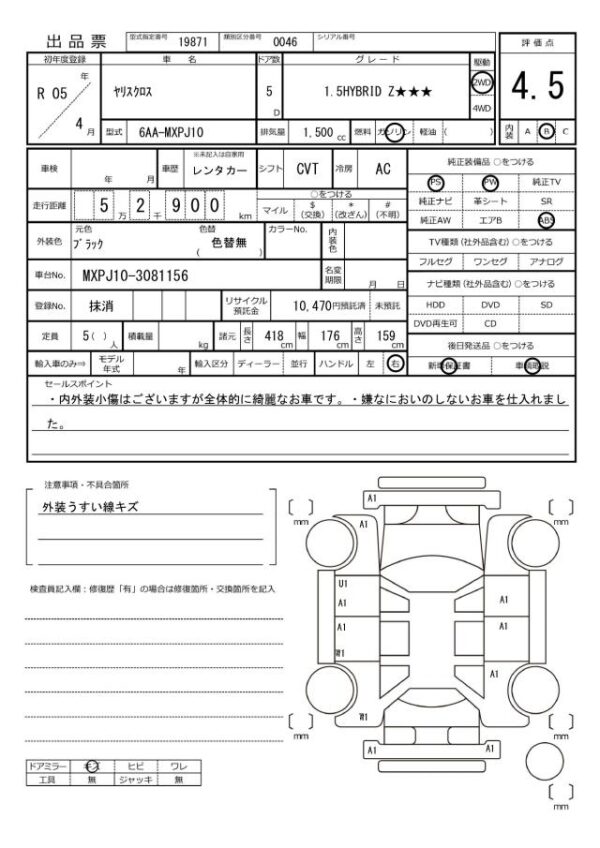 出品票 型式指定番号 19871 類別区分番号 0046 シリアル番号
初年度登録 車名 ドア数 グレード 駆動 評価点
R 05 年 4 月 ヤリスクロス 5 D 1.5HYBRID Z★★★ 2WD 4WD 4.5
型式 6AA-MXPJ10 排気量 1,500 cc 燃料 ガソリン 軽油 ( ) 内装 A B C
車検 年 月 車歴 ※未記入は自家用 レンタカー シフト CVT 冷房 AC 純正装備品 ○をつける
走行距離 5 万 2 千 9 0 0 km ○をつける マイル $ (交換) * (改ざん) # (不明)
PS PW 純正TV
純正ナビ 革シート SR
純正AW エアB ABS
外装色 元色 ブラック 色替 色替無 ( ) カラーNo. 内装色
TV種類 (社外品含む) ○をつける
フルセグ ワンセグ アナログ
車台No. MXPJ10-3081156 名変期限 月 日
ナビ種類 (社外品含む) ○をつける
登録No. 抹消 リサイクル預託金 10,470円預託済 未預託
HDD DVD SD
DVD再生可 CD
定員 5 ( ) 人 積載量 kg 諸元 長さ 418 cm 幅 176 cm 高さ 159 cm
後日発送品 ○をつける
輸入車のみ⇒ モデル年式 年 輸入区分 ディーラー 並行 ハンドル 左 右
新車保証書 車輌取説
セールスポイント
・内外装小傷はございますが全体的に綺麗なお車です。・嫌なにおいのしないお車を仕入れまし
た。
注意事項・不具合箇所
外装うすい線キズ
検査員記入欄：修復歴「有」の場合は修復箇所・交換箇所を記入
A1
[ ] mm A1 [ ] mm
U1
A1 A1
A1 A1
W1
A1 A1
[ ] mm W1 [ ] mm
A1 A1
[ ] mm
ドアミラー キズ ヒビ ワレ
工具 無 ジャッキ 無